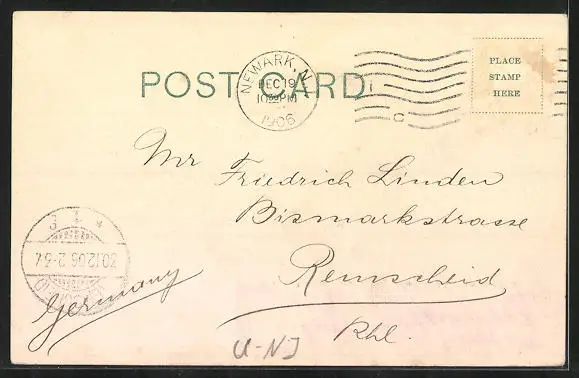 POST CARD
NEWARK, N.
DEC 19
10 PM
1906
PLACE
STAMP
HERE
Mr Friedrich Linden
Bismarkstrasse
Remscheid
Rhl.
Germany
30.12.06.
U-NJ